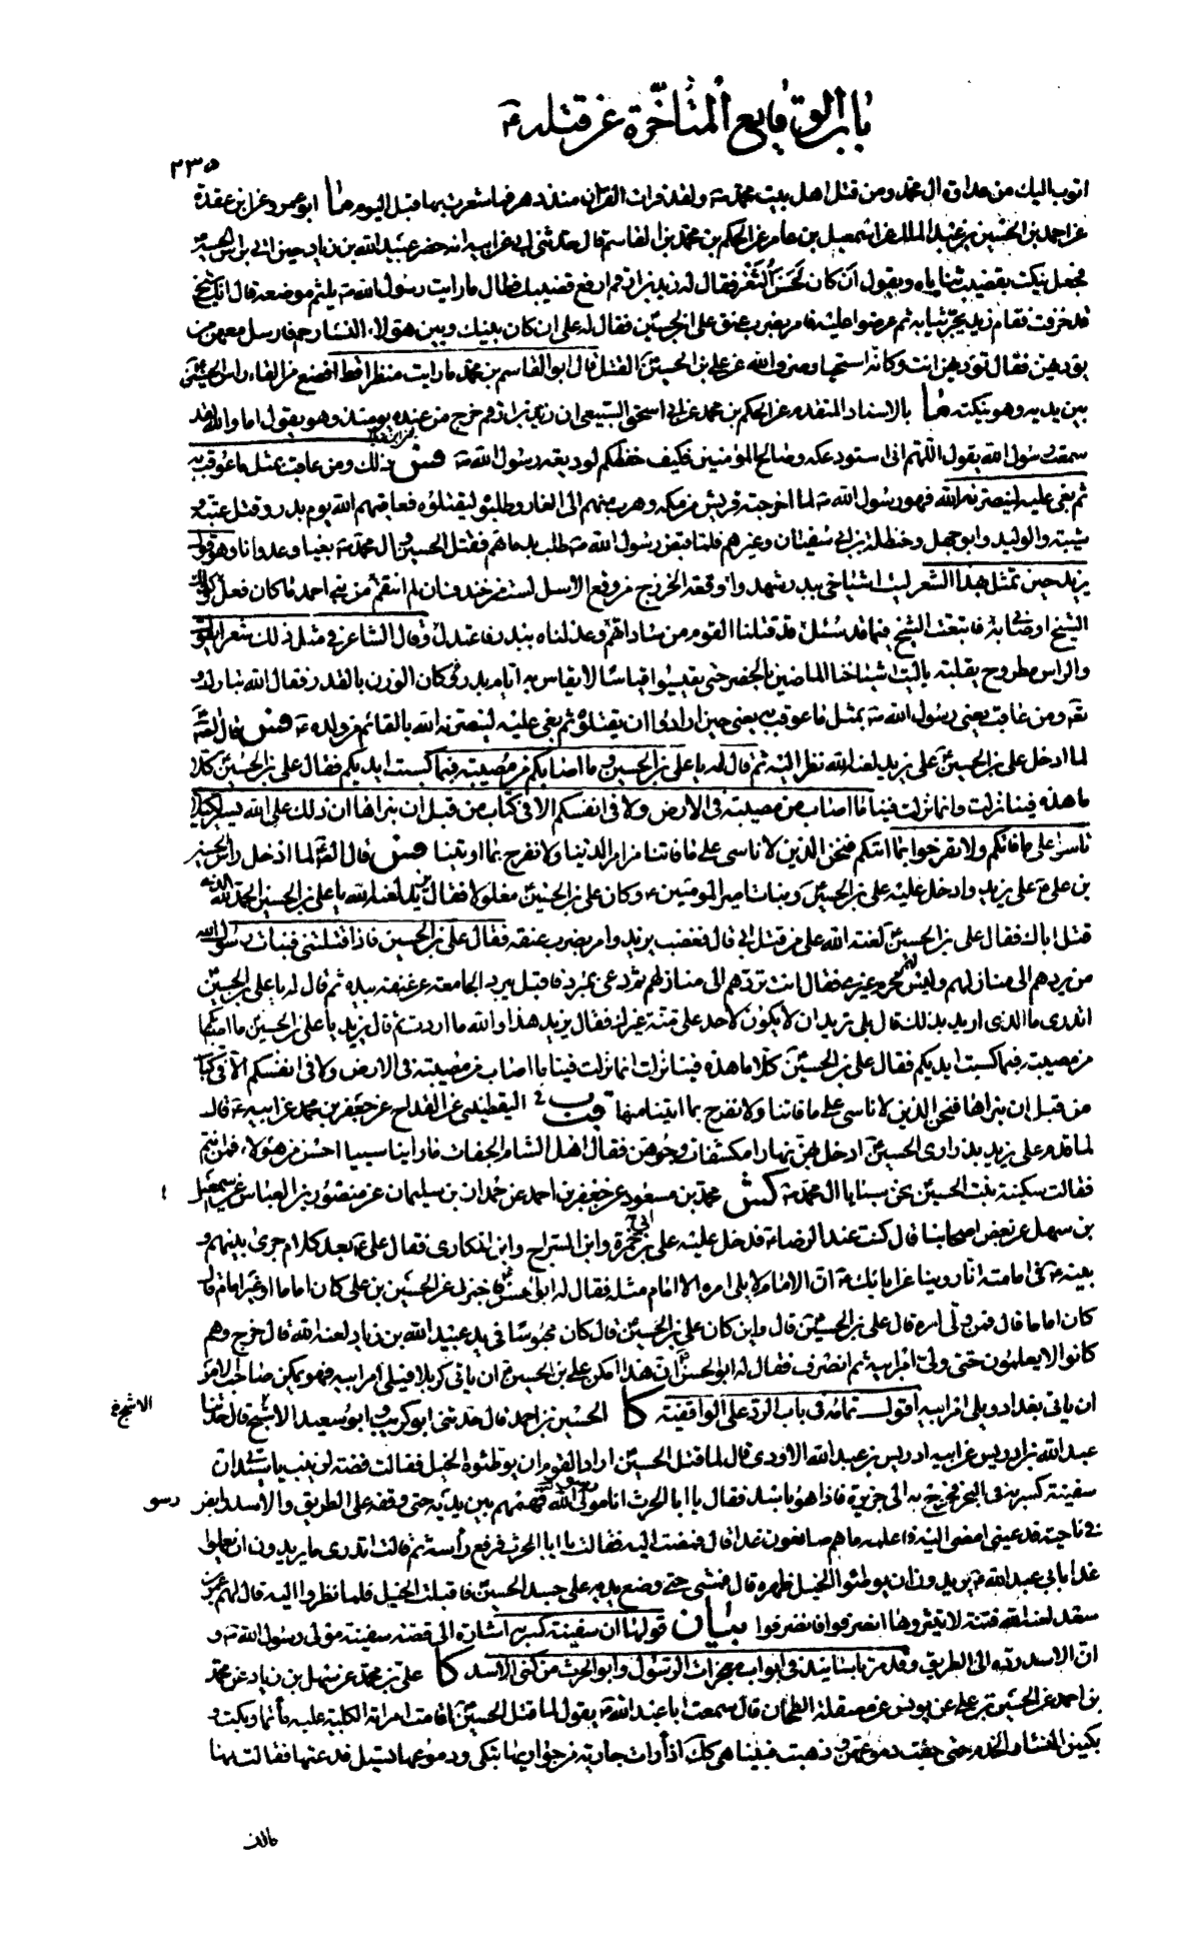 باب الوقايع المتأخرة عن قتله ع
٢٣٥
اتوب اليك من عداوة ال محمد ومن قتل اهل بيت محمد ص ولقد قرات القران منذ دهر فما شعرت بها قبل اليوم ما ابو عمرو عن ابن عقدة
عن احمد بن الحسين بن عبد الملك عن اسمعيل بن عامر عن الحكم بن محمد بن القاسم قال حدثني ابي عن ابيه انه حضر عبيد الله بن زياد حين اتي براس الحسين ع
فجعل ينكت بقضيب ثناياه ويقول ان كان لحسن الثغر فقال له زيد بن ارقم ارفع قضيبك فطال ما رايت رسول الله ص يلثم موضعه قال انك شيخ
قد خرفت فقام زيد يجر ثيابه ثم عرضوا عليه فامر بضرب عنق علي بن الحسين فقال له علي ان كان بينك وبين هؤلاء النساء رحم فارسل معهن من
يؤديهن فقال تؤديهن انت وكانه استحيا وصرف الله عن علي بن الحسين ع القتل قال ابو القاسم بن محمد ما رايت منظرا قط افضع من القاء راس الحسين ع
بين يديه وهو ينكته ما بالاسناد المتقدم عن الحكم بن محمد عن ابي اسحق السبيعي ان زيد بن ارقم خرج من عنده يومئذ وهو يقول اما والله لقد
سمعت رسول الله يقول اللهم اني استودعكه وصالح المؤمنين فكيف حفظكم لوديعة رسول الله ص فس ذلك ومن عاقب بمثل ما عوقب به
ثم بغي عليه لينصرنه الله فهو رسول الله ص لما اخرجته قريش من مكة وهرب منهم الى الغار وطلبوه ليقتلوه فعاقبهم الله يوم بدر وقتل عتبة و
شيبة والوليد وابو جهل وحنظلة بن ابي سفيان وغيرهم فلما قبض رسول الله ص طلب بدمائهم فقتل الحسين وال محمد ص بغيا وعدوانا وهو قول
يزيد حين تمثل بهذا الشعر ليت اشياخي ببدر شهدوا وقعة الخزرج من وقع الاسل لست من خندف ان لم انتقم من بني احمد ما كان فعل وكذلك
الشيخ اوصاني به فاتبعت الشيخ فيما قد سئل قد قتلنا القوم من ساداتهم وعدلناه ببدر فاعتدل وقال الشاعر في مثل ذلك شعر
والراس مطروح يقلبه يا ليت اشياخنا الماضين بالحضر حتى يقيسوا قياسا لا يقاس به ايام بدر فكان الوزن بالقدر فقال الله تبارك و
تعالى ومن عاقب يعني رسول الله ص بمثل ما عوقب به يعني حين ارادوا ان يقتلوه ثم بغي عليه لينصرنه الله بالقائم من ولده ع فس قال الصادق ع
لما ادخل علي بن الحسين ع على يزيد لعنه الله نظر اليه ثم قال له يا علي بن الحسين وما اصابكم من مصيبة فبما كسبت ايديكم فقال علي بن الحسين ع كلا
ما هذه فينا نزلت وانما نزلت فينا ما اصاب من مصيبة في الارض ولا في انفسكم الا في كتاب من قبل ان نبراها ان ذلك على الله يسير لكيلا
تاسوا على ما فاتكم ولا تفرحوا بما اتيكم فنحن الذين لا ناسى على ما فاتنا من امر الدنيا ولا نفرح بما اوتينا فس قال الصادق ع لما ادخل راس الحسين
بن علي ع على يزيد وادخل عليه علي بن الحسين ع وبنات امير المؤمنين ع وكان علي بن الحسين ع مغلولا فقال يزيد لعنه الله يا علي بن الحسين الحمد لله الذي
قتل اباك فقال علي بن الحسين لعنة الله على من قتل ابي قال فغضب يزيد وامر بضرب عنقه فقال علي بن الحسين فاذا قتلتني فبنات رسول الله
من يردهم الى منازلهم وليس لهم محرم غيري فقال انت تردهم الى منازلهم ثم دعى بمبرد فاقبل يبرد الجامعة عن عنقه بيده ثم قال له يا علي بن الحسين
اتدري ما الذي اريد بذلك قال بلى تريد ان لا يكون لاحد علي منة غيرك فقال يزيد هذا والله ما اردت ثم قال يزيد يا علي بن الحسين ما اصابكم
من مصيبة فبما كسبت ايديكم فقال علي بن الحسين ع كلا ما هذه فينا نزلت انما نزلت فينا ما اصاب من مصيبة في الارض ولا في انفسكم الا في كتاب
من قبل ان نبراها فنحن الذين لا ناسى على ما فاتنا ولا نفرح بما اتينا منها ب اليقطيني عن القداح عن جعفر بن محمد عن ابيه ع قال
لما قدم على يزيد بذراري الحسين ع ادخل بهن نهارا مكشفات وجوههن فقال اهل الشام الجفاة ما راينا سبيا احسن من هؤلاء فمن انتم
فقالت سكينة بنت الحسين نحن سبايا ال محمد ص كش محمد بن مسعود عن جعفر بن احمد عن حمدان بن سليمان عن منصور بن العباس عن اسمعيل
بن سهل عن بعض اصحابنا قال كنت عند الرضا ع فدخل عليه علي بن ابي حمزة وابن السراج وابن المكاري فقال علي بعد كلام جرى بينهم و
بينه ع في امامته انا روينا عن ابائك ع ان الامام لا يلي امره الا امام مثله فقال له ابو الحسن ع فاخبرني عن الحسين بن علي كان اماما او غير امام قال
كان اماما قال فمن ولي امره قال علي بن الحسين قال واين كان علي بن الحسين ع قال كان محبوسا في يد عبيد الله بن زياد لعنه الله قال خرج وهم
كانوا لا يعلمون حتى ولي امر ابيه ثم انصرف فقال له ابو الحسن ع ان هذا امكن علي بن الحسين ع ان ياتي كربلا فيلي امر ابيه فهو يمكن صاحب الامر
ان ياتي بغداد ويلي امر ابيه اقول تمامه في باب الرد على الواقفية كا الحسين بن احمد قال حدثني ابو كريب وابو سعيد الاشج قال حدثنا
الاشج خ
عبد الله بن ادريس عن ابيه ادريس بن عبد الله الاودي قال لما قتل الحسين ع اراد القوم ان يوطئوه الخيل فقالت فضة لزينب يا سيدتي ان
سفينة كسر به في البحر فخرج به الى جزيرة فاذا هو باسد فقال يا ابا الحرث انا مولى رسول الله ص فهمهم بين يديه حتى وقفه على الطريق والاسد رابض
رسو
في ناحية فدعيني امضي اليه فاعلمه ما هم صانعون غدا قال فمضت اليه فقالت يا ابا الحرث فرفع رأسه ثم قالت اتدري ما يريدون ان يعملوا
غدا بابي عبد الله ع يريدون ان يوطئوا الخيل ظهره قال فمشى حتى وضع يديه على جسد الحسين ع فاقبلت الخيل فلما نظروا اليه قال لهم عمر بن
سعد لعنه الله فتنة لا تثيروها انصرفوا فانصرفوا بيان قولها ان سفينة كسر به اشارة الى قصة سفينة مولى رسول الله ص و
ان الاسد رده الى الطريق وقد مر باسانيد في ابواب معجزات الرسول وابو الحرث من كنى الاسد كا علي بن محمد عن سهل بن زياد عن محمد
بن احمد عن الحسين بن علي عن يونس عن مصقلة الطحان قال سمعت ابا عبد الله ع يقول لما قتل الحسين ع اقامت امراته الكلبية عليه مأتما وبكت و
بكين النساء والخدم حتى جفت دموعهن وذهبت فبينا هي كك اذ رأت جارية من جواريها تبكي ودموعها تسيل فدعتها فقالت لها
مالك